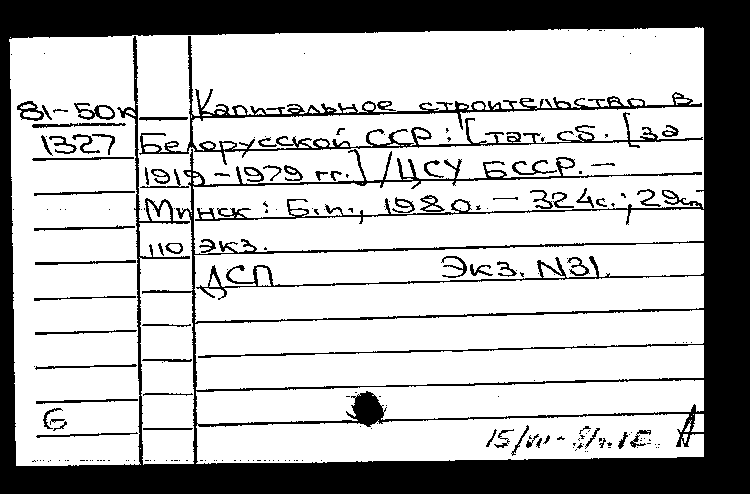 81-50к Капитальное строительство в
1327 Белорусской ССР: [тат. сб. [за
1919-1979 гг.] /ЦСУ БССР. —
Минск: Б.и., 1980. — 324с.; 29см
110 экз.
ДСП Экз. N31.
Б
15/VII-81г.